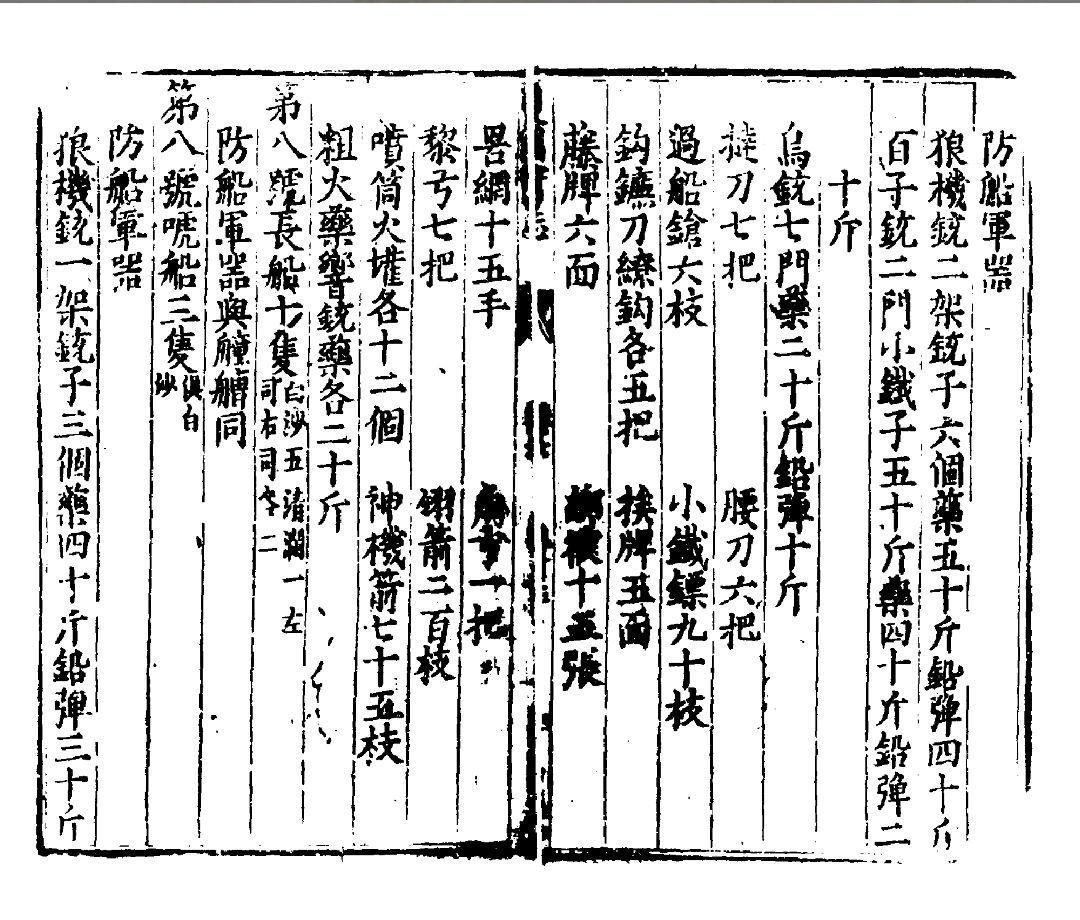 防船軍器
狼機銃二架銃子六個藥五十斤鉛弹四十斤
百子銃二門小鐵子五十斤藥四十斤鉛弹二
十斤
鳥銃七門藥二十斤鉛弹十斤
刀七把 腰刀六把
過船鎗六枝 小鐵鏢九十枝
鈎鐮刀繚鈎各五把 挨牌五面
藤牌六面 十五張
罟網十五手 一把
黎弓七把 箭二百枝
噴筒火罐各十二個 神機箭七十五枝
粗火藥響銃藥各二十斤
第八號長船七隻 白沙五清瀾一左
司右司各二
防船軍器與艟艚同
第八號唬船三隻 俱白
沙
防船軍器
狼機銃一架銃子三個藥四十斤鉛弹三十斤